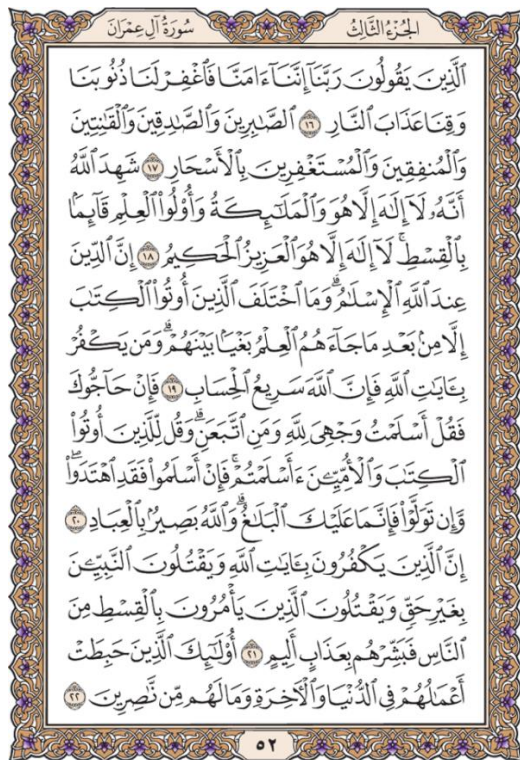 الجُزْءُ الثَّالِثُ سُورَةُ آلِ عِمْرَانَ
ٱلَّذِينَ يَقُولُونَ رَبَّنَآ إِنَّنَآ ءَامَنَّا فَٱغْفِرْ لَنَا ذُنُوبَنَا
وَقِنَا عَذَابَ ٱلنَّارِ ١٦ ٱلصَّٰبِرِينَ وَٱلصَّٰدِقِينَ وَٱلْقَٰنِتِينَ
وَٱلْمُنفِقِينَ وَٱلْمُسْتَغْفِرِينَ بِٱلْأَسْحَارِ ١٧ شَهِدَ ٱللَّهُ
أَنَّهُۥ لَآ إِلَٰهَ إِلَّا هُوَ وَٱلْمَلَٰٓئِكَةُ وَأُو۟لُوا۟ ٱلْعِلْمِ قَآئِمًۢا
بِٱلْقِسْطِۚ لَآ إِلَٰهَ إِلَّا هُوَ ٱلْعَزِيزُ ٱلْحَكِيمُ ١٨ إِنَّ ٱلدِّينَ
عِندَ ٱللَّهِ ٱلْإِسْلَٰمُۗ وَمَا ٱخْتَلَفَ ٱلَّذِينَ أُوتُوا۟ ٱلْكِتَٰبَ
إِلَّا مِنۢ بَعْدِ مَا جَآءَهُمُ ٱلْعِلْمُ بَغْيًۢا بَيْنَهُمْۗ وَمَن يَكْفُرْ
بِـَٔايَٰتِ ٱللَّهِ فَإِنَّ ٱللَّهَ سَرِيعُ ٱلْحِسَابِ ١٩ فَإِنْ حَآجُّوكَ
فَقُلْ أَسْلَمْتُ وَجْهِىَ لِلَّهِ وَمَنِ ٱتَّبَعَنِۗ وَقُل لِّلَّذِينَ أُوتُوا۟
ٱلْكِتَٰبَ وَٱلْأُمِّيِّـۧنَ ءَأَسْلَمْتُمْۚ فَإِنْ أَسْلَمُوا۟ فَقَدِ ٱهْتَدَوا۟ۖ
وَّإِن تَوَلَّوْا۟ فَإِنَّمَا عَلَيْكَ ٱلْبَلَٰغُۗ وَٱللَّهُ بَصِيرٌۢ بِٱلْعِبَادِ ٢٠
إِنَّ ٱلَّذِينَ يَكْفُرُونَ بِـَٔايَٰتِ ٱللَّهِ وَيَقْتُلُونَ ٱلنَّبِيِّـۧنَ
بِغَيْرِ حَقٍّ وَيَقْتُلُونَ ٱلَّذِينَ يَأْمُرُونَ بِٱلْقِسْطِ مِنَ
ٱلنَّاسِ فَبَشِّرْهُم بِعَذَابٍ أَلِيمٍ ٢١ أُو۟لَٰٓئِكَ ٱلَّذِينَ حَبِطَتْ
أَعْمَٰلُهُمْ فِى ٱلدُّنْيَا وَٱلْـَٔاخِرَةِ وَمَا لَهُم مِّن نَّٰصِرِينَ ٢٢
٥٢